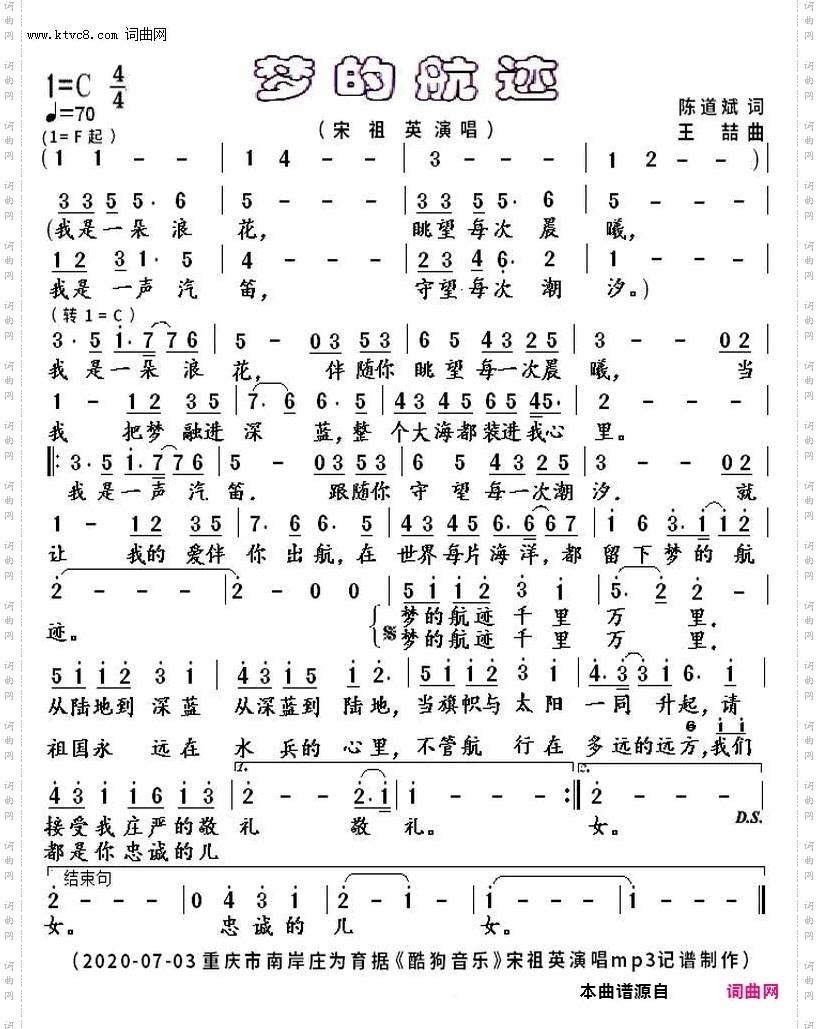 www.ktvc8.com 词曲网
梦的航迹
1=C 4/4
♩=70
(1=F起)
(宋祖英演唱)
陈道斌 词
王喆 曲
(1 1 - - | 1 4 - - | 3 - - - | 1 2 - -) |
3 3 5 5· 6 | 5 - - - | 3 3 5 5· 6 | 5 - - - |
(我是一朵浪花, 眺望每次晨曦,
1 2 3 1· 5 | 4 - - - | 2 3 4 6· 2 | 1 - - - |
我是一声汽笛, 守望每次潮汐。)
(转1=C)
3· 5 1· 7 7 7 6 | 5 - 0 3 5 5 3 | 6 5 4 3 2 5 | 3 - - 0 2 |
我是一朵浪花, 伴随你眺望每一次晨曦, 当
1 - 1 2 3 5 | 7· 6 6· 5 | 4 3 4 5 6 5 4 5· | 2 - - - |
我 把梦融进深蓝,整个大海都装进我心里。
3· 5 1· 7 7 7 6 | 5 - 0 3 5 5 3 | 6 5 4 3 2 5 | 3 - - 0 2 |
我是一声汽笛. 跟随你守望每一次潮汐. 就
1 - 1 2 3 5 | 7· 6 6· 5 | 4 3 4 5 6· 6 6 7 | 1 6 3· 1 1 2 |
让 我的爱伴你出航,在世界每片海洋,都留下梦的航
2 - - - | 2 - 0 0 | 5 1 1 2 3 1 | 5· 2 2 - |
迹。 梦的航迹千里万里.
梦的航迹千里万里.
5 1 1 2 3 1 | 4 3 1 5 1 2· | 5 1 1 2 3 1 | 4· 3 3 1 6· 1 |
从陆地到深蓝 从深蓝到陆地,当旗帜与太阳一同升起,请
6 1 1
祖国永远在水兵的心里,不管航行在多远的远方,我们
1. 2.
4 3 1 1 6 1 3 | 2 - - 2· 1 | 1 - - - :‖ 2 - - - |
D.S.
接受我庄严的敬礼 敬礼。 女。
都是你忠诚的儿
结束句
2 - - - | 0 4 3 1 | 2 - - 1 | 1 - - - | 1 - - - ‖
女。 忠诚的儿女。
(2020-07-03重庆市南岸庄为育据《酷狗音乐》宋祖英演唱mp3记谱制作)
本曲谱源自 词曲网